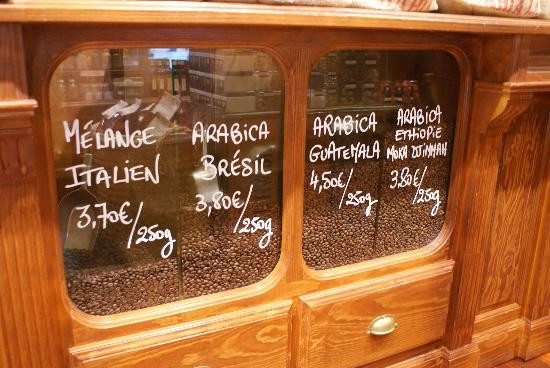 MÉLANGE
ITALIEN
3,70€/250g
ARABICA
BRÉSIL
3,80€/250g
ARABICA
GUATEMALA
4,50€/250g
ARABICA
ETHIOPIE
MOKA DJIMMAH
3.80€/250g